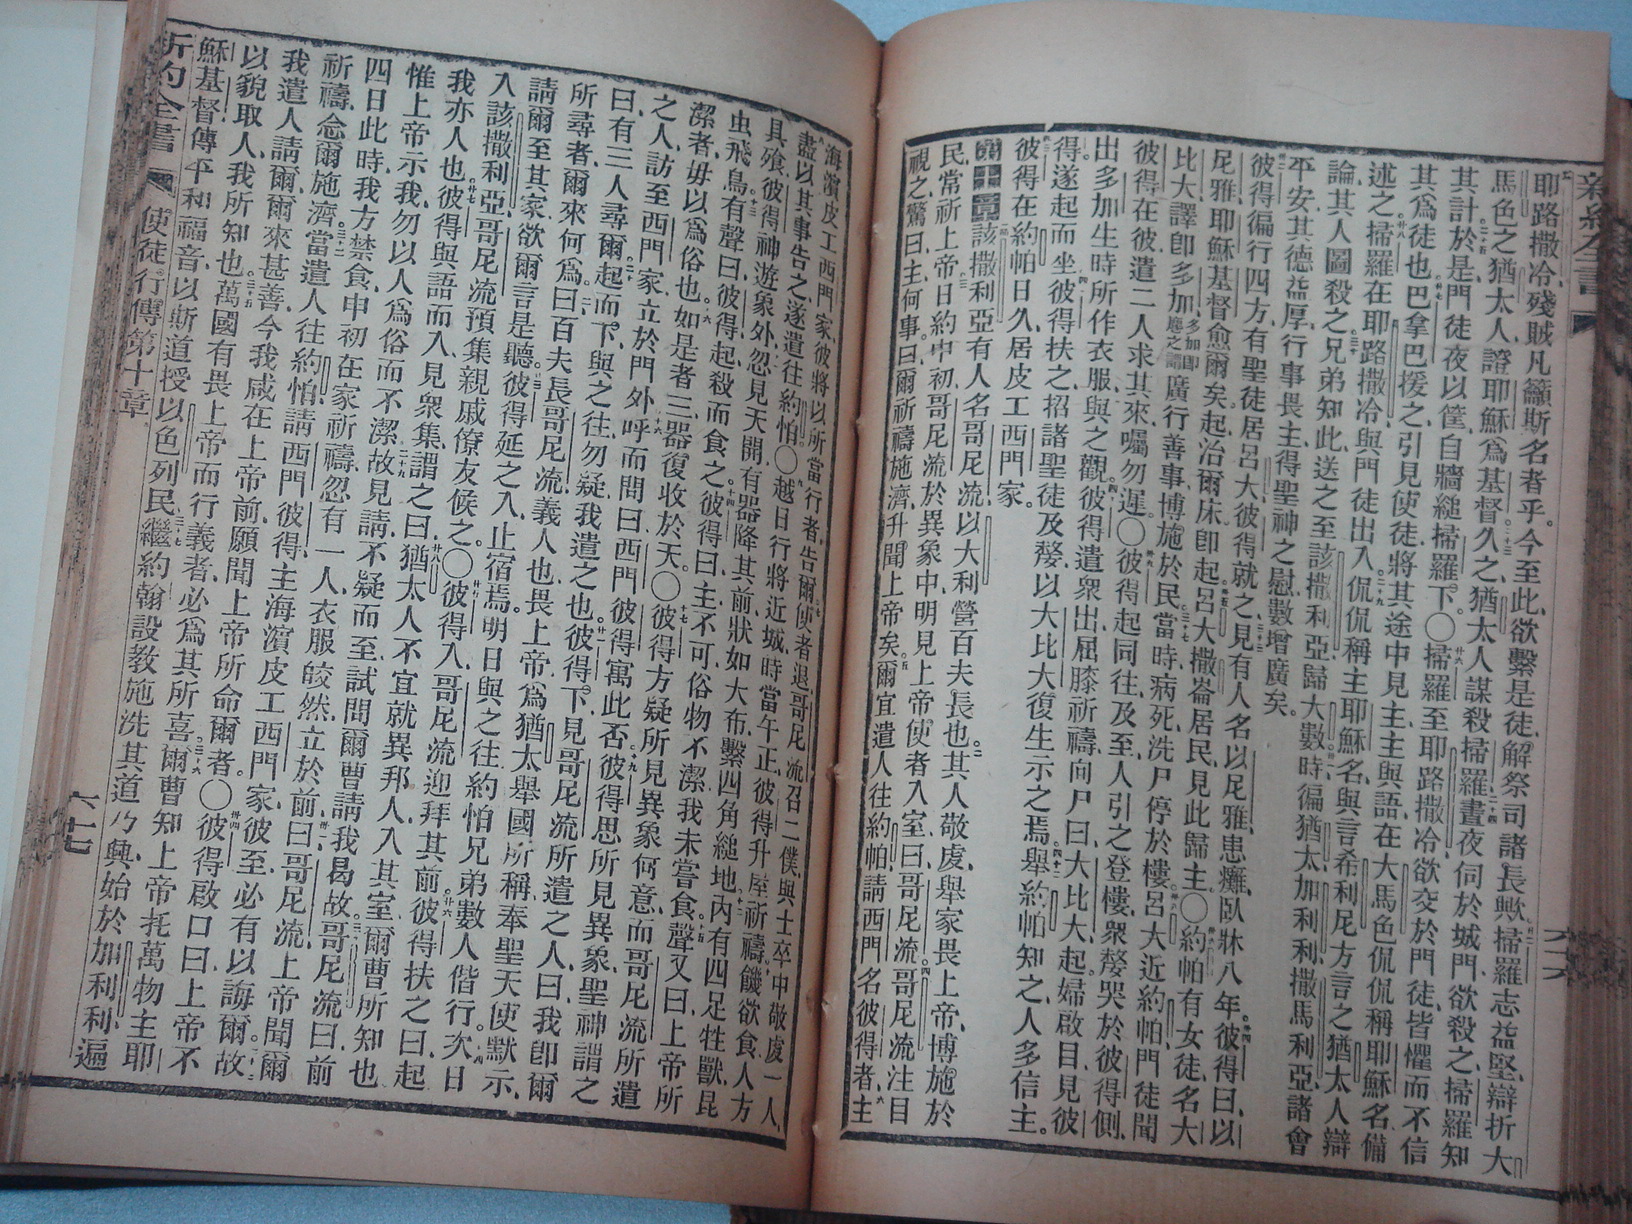 新約全書
六十六
耶路撒冷殘賊凡籲斯名者乎今至此欲繫是徒解祭司諸長歟掃羅志益堅辯折大
馬色之猶太人證耶穌爲基督久之猶太人謀殺掃羅晝夜伺於城門欲殺之掃羅知
其計於是門徒夜以筐自牆縋掃羅下〇掃羅至耶路撒冷欲交於門徒皆懼而不信
其爲徒也巴拿巴援之引見使徒將其途中見主主與語在大馬色侃侃稱耶穌名備
述之掃羅在耶路撒冷與門徒出入侃侃稱主耶穌名與言希利尼方言之猶太人辯
論其人圖殺之兄弟知此送之至該撒利亞歸大數時徧猶太加利利撒馬利亞諸會
平安其德益厚行事畏主得聖神之慰數增廣矣
彼得徧行四方有聖徒居呂大彼得就之見有人名以尼雅患癱臥牀八年彼得曰以
尼雅耶穌基督愈爾矣起治爾床卽起呂大撒崙居民見此歸主〇約帕有女徒名大
比大譯卽多加多加卽麀之謂廣行善事博施於民當時病死洗尸停於樓呂大近約帕門徒聞
彼得在彼遣二人求其來囑勿遲〇彼得起同往及至人引之登樓衆嫠哭於彼得側
出多加生時所作衣服與之觀彼得遣衆出屈膝祈禱向尸曰大比大起婦啟目見彼
得遂起而坐彼得扶之招諸聖徒及嫠以大比大復生示之焉舉約帕知之人多信主
彼得在約帕日久居皮工西門家
第十章該撒利亞有人名哥尼流以大利營百夫長也其人敬虔舉家畏上帝博施於
民常祈上帝日約申初哥尼流於異象中明見上帝使者入室曰哥尼流哥尼流注目
視之驚曰主何事曰爾祈禱施濟升聞上帝矣爾宜遣人往約帕請西門名彼得者主
海濱皮工西門家彼將以所當行者告爾使者退哥尼流召二僕與士卒中敬虔一人
盡以其事告之遂遣往約怕〇越日行將近城時當午正彼得升屋祈禱饑欲食人方
具飱彼得神遊象外忽見天開有器降其前狀如大布繫四角縋地內有四足牲獸昆
虫飛鳥有聲曰彼得起殺而食之彼得曰主不可俗物不潔我未嘗食聲又曰上帝所
潔者毋以爲俗也如是者三器復收於天〇彼得方疑所見異象何意而哥尼流所遣
之人訪至西門家立於門外呼而問曰西門彼得寓此否彼得思所見異象聖神謂之
曰有三人尋爾起而下與之往勿疑我遣之也彼得下見哥尼流所遣之人曰我卽爾
所尋者爾來何爲曰百夫長哥尼流義人也畏上帝爲猶太舉國所稱奉聖天使默示
請爾至其家欲爾言是聽彼得延之入止宿焉明日與之往約怕兄弟數人偕行次日
入該撒利亞哥尼流預集親戚僚友候之〇彼得入哥尼流迎拜其前彼得扶之曰起
我亦人也彼得與語而入見衆集謂之曰猶太人不宜就異邦人入其室爾曹所知也
惟上帝示我勿以人爲俗而不潔故見請不疑而至試問爾曹請我曷故哥尼流曰前
四日此時我方禁食申初在家祈禱忽有一人衣服皎然立於前曰哥尼流上帝聞爾
祈禱念爾施濟當遣人往約怕請西門彼得主海濱皮工西門家彼至必有以誨爾故
我遣人請爾爾來甚善今我咸在上帝前願聞上帝所命爾者〇彼得啟口曰上帝不
以貌取人我所知也萬國有畏上帝而行義者必爲其所喜爾曹知上帝托萬物主耶
穌基督傳平和福音以斯道授以色列民繼約翰設教施洗其道乃興始於加利利遍
新約全書
使徒行傳第十章
六十七